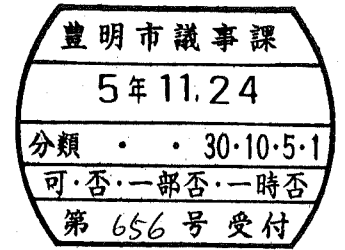 豊明市議事課
5年11.24
分類 ・ ・ 30・10・5・1
可・否・一部否・一時否
第 656 号 受付